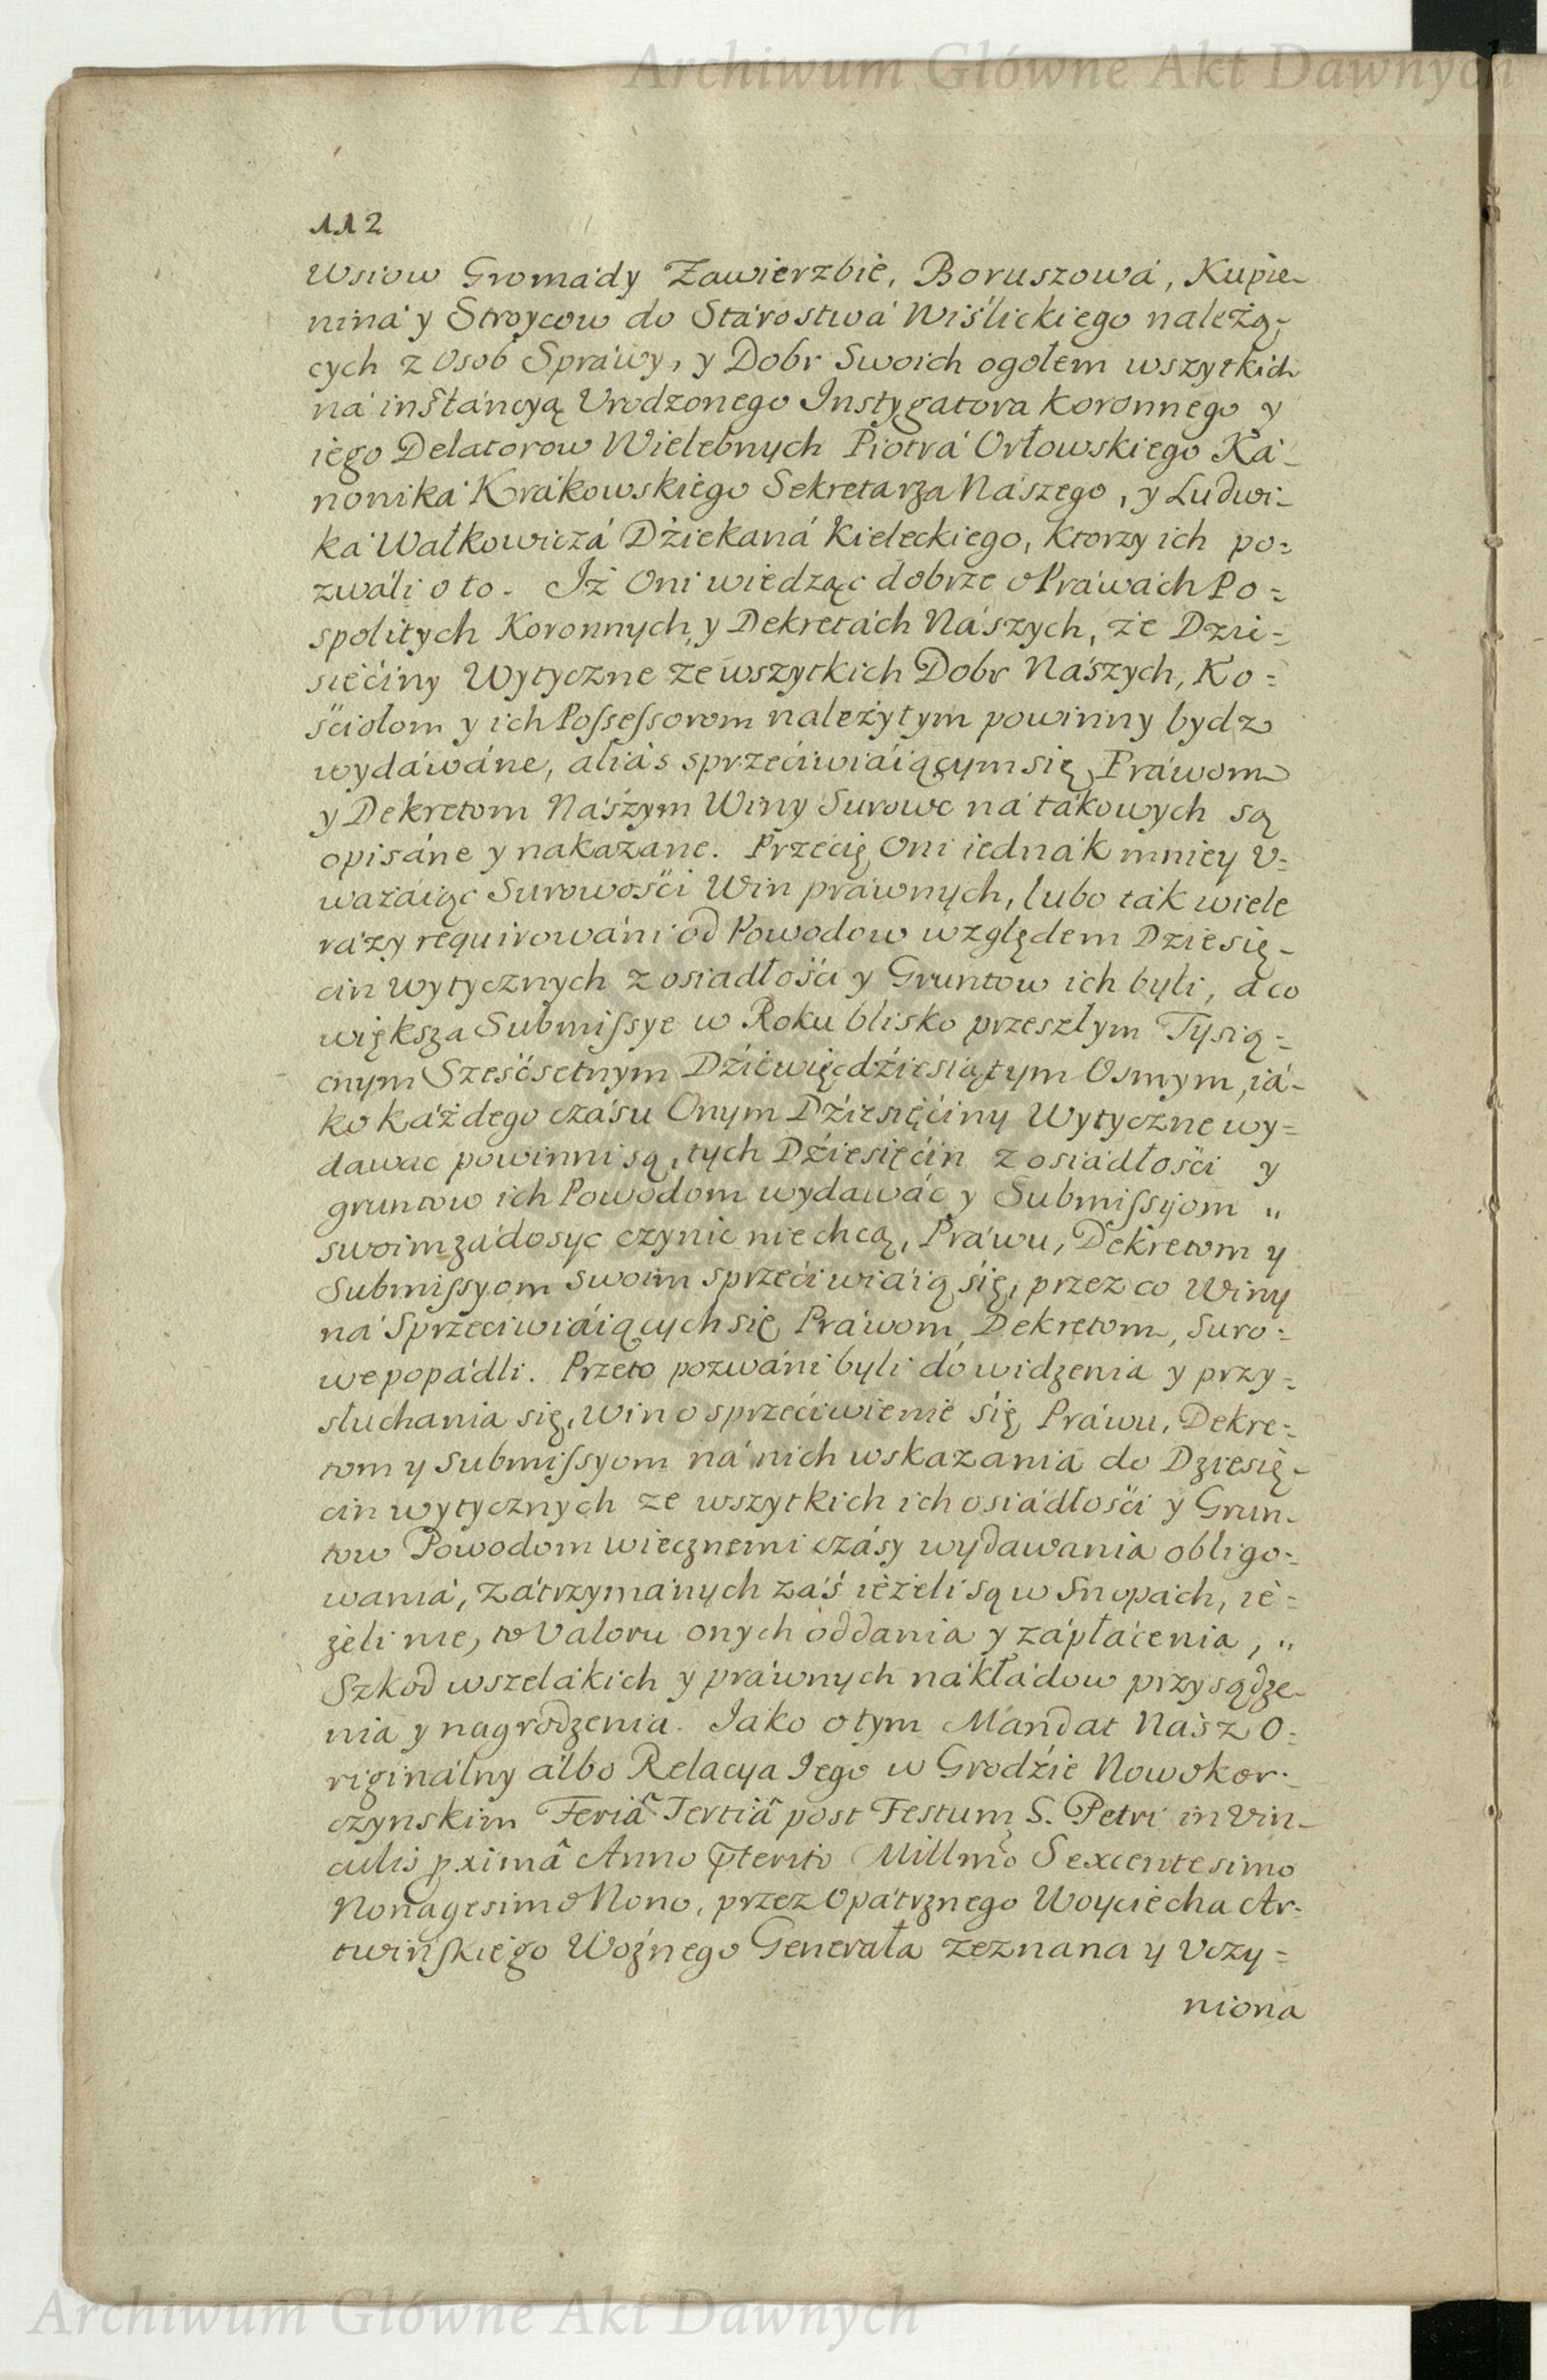 Archiwum Główne Akt Dawnych
112
Wsiow Gromády Zawierzbie, Boruszowá, Kupie-
niná y Stroycow do Stárostwá Wiślickiego należą-
cych z Osob Spráwy, y Dobr Swoich ogołem wszytkich
ná instáncyą Vrodzonego Instygatora Koronnego y
iego Delatorow Wielebnych Piotrá Orłowskiego Ká-
noniká Krákowskiego Sekretarza Nászego, y Ludwi-
ká Wałkowiczá Dźiekaná Kieleckiego, ktorzy ich po=
zwáli o to. Iż Oni wiedząc dobrze o Práwách Po=
spolitych Koronnych, y Dekretách Nászych, że Dzie=
sięćiny Wytyczne ze wszytkich Dobr Nászych, Ko=
śćiołom y ich Poſseſsorom należytym powinny bydz
wydáwáne, aliás sprzećiwiáiącym się Práwom
y Dekretom Nászym Winy Surowe ná tákowych są
opisáne y nakazane. Przecię Oni iednák mniey V=
ważáiąc Surowośći Win práwnych, lubo ták wiele
rázy requirowáni od Powodow względem Dziesię-
cin wytycznych z osiadłośći y Gruntow ich byli, á co
większa Submiſsye w Roku blisko przeszłym Tysią=
cnym Sześćsetnym Dźiewięćdźiesiątym Osmym, iá-
ko káżdego czásu Onym Dźiesięćiny Wytyczne wy=
dawac powinni są, tych Dźiesięćin z osiádłośći y
gruntow ich Powodom wydawáć y Submiſsyom "
swoim zádosyc czynic niechcą, Práwu, Dekretom y
Submiſsyom swoim sprzećiwiáią się, przez co Winy
ná Sprzeciwiáiących się Práwom, Dekretom, Suro=
we popádli. Przeto pozwáni byli do widzenia y przy=
słuchania się, Win o sprzećiwienie się Práwu, Dekre=
tom y Submiſsyom ná nich wskazania do Dziesię-
cin wytycznych ze wszytkich ich osiádłośći y Grun-
tow Powodom wiecznemi czásy wydawania obligo=
wania, zátrzymánych záś ieżeli są w Snopách, ie=
żeli nie, to Valoru onych oddania y zápłácenia, "
Szkod wszelákich y práwnych nákłádow przysądze-
nia y nagrodzenia. Iako o tym Mándat Nász O=
riginálny álbo Relacya Iego w Grodźie Nowokor-
czynskim Feriâ Tertiâ post Festum S. Petri in Vin-
culis pximâ Anno pterito Millmo Sexcentesimo
Nonagesimo Nono, przez Opátrznego Woyciecha Ar-
twińſkiego Woźnego Generała zeznana y vczy=
niona
Archiwum Główne Akt Dawnych